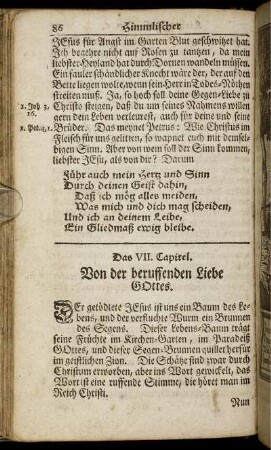 86 Himmlischer
JEsus für Angst im Garten Blut geschwitzet hat.
Ich begehre nicht auf Rosen zu tantzen, da mein
liebster Heyland hat durch Dornen wandeln müssen.
Ein fauler schändlicher Knecht wäre der, der auf der
Bette liegen wolte, wenn sein Herr in Todes-Nöthen
streiten muß. Ja, so hoch soll deine Gegen-Liebe zu
1. Joh 3. Christo steigen, daß du um seines Nahmens willen
16. gern dein Leben verleurest, auch für deine und seine
1. Pet. 4, 1. Brüder. Das meynet Petrus: Wie Christus im
Fleisch für uns gelitten, so wapnet euch mit demsel-
bigen Sinn. Aber von wem soll der Sinn kommen,
liebster JEsu, als von dir? Darum
Führ auch mein Hertz und Sinn
Durch deinen Geist dahin,
Daß ich mög alles meiden,
Was mich und dich mag scheiden,
Und ich an deinem Leibe,
Ein Gliedmaß ewig bleibe.
Das VII. Capitel.
Von der beruffenden Liebe
GOttes.
DEr getödtete JEsus ist uns ein Baum des Le-
bens, und der verfluchte Wurm ein Brunnen
des Segens. Dieser Lebens-Baum trägt
seine Früchte im Kirchen-Garten, im Paradeiß
GOttes, und dieser Segen-Brunnen quillet herfür
im geistlichen Zion. Die Schätze sind zwar durch
Christum erworben, aber ins Wort gewickelt, das
Wort ist eine ruffende Stimme, die höret man im
Reich Christi.
Nun